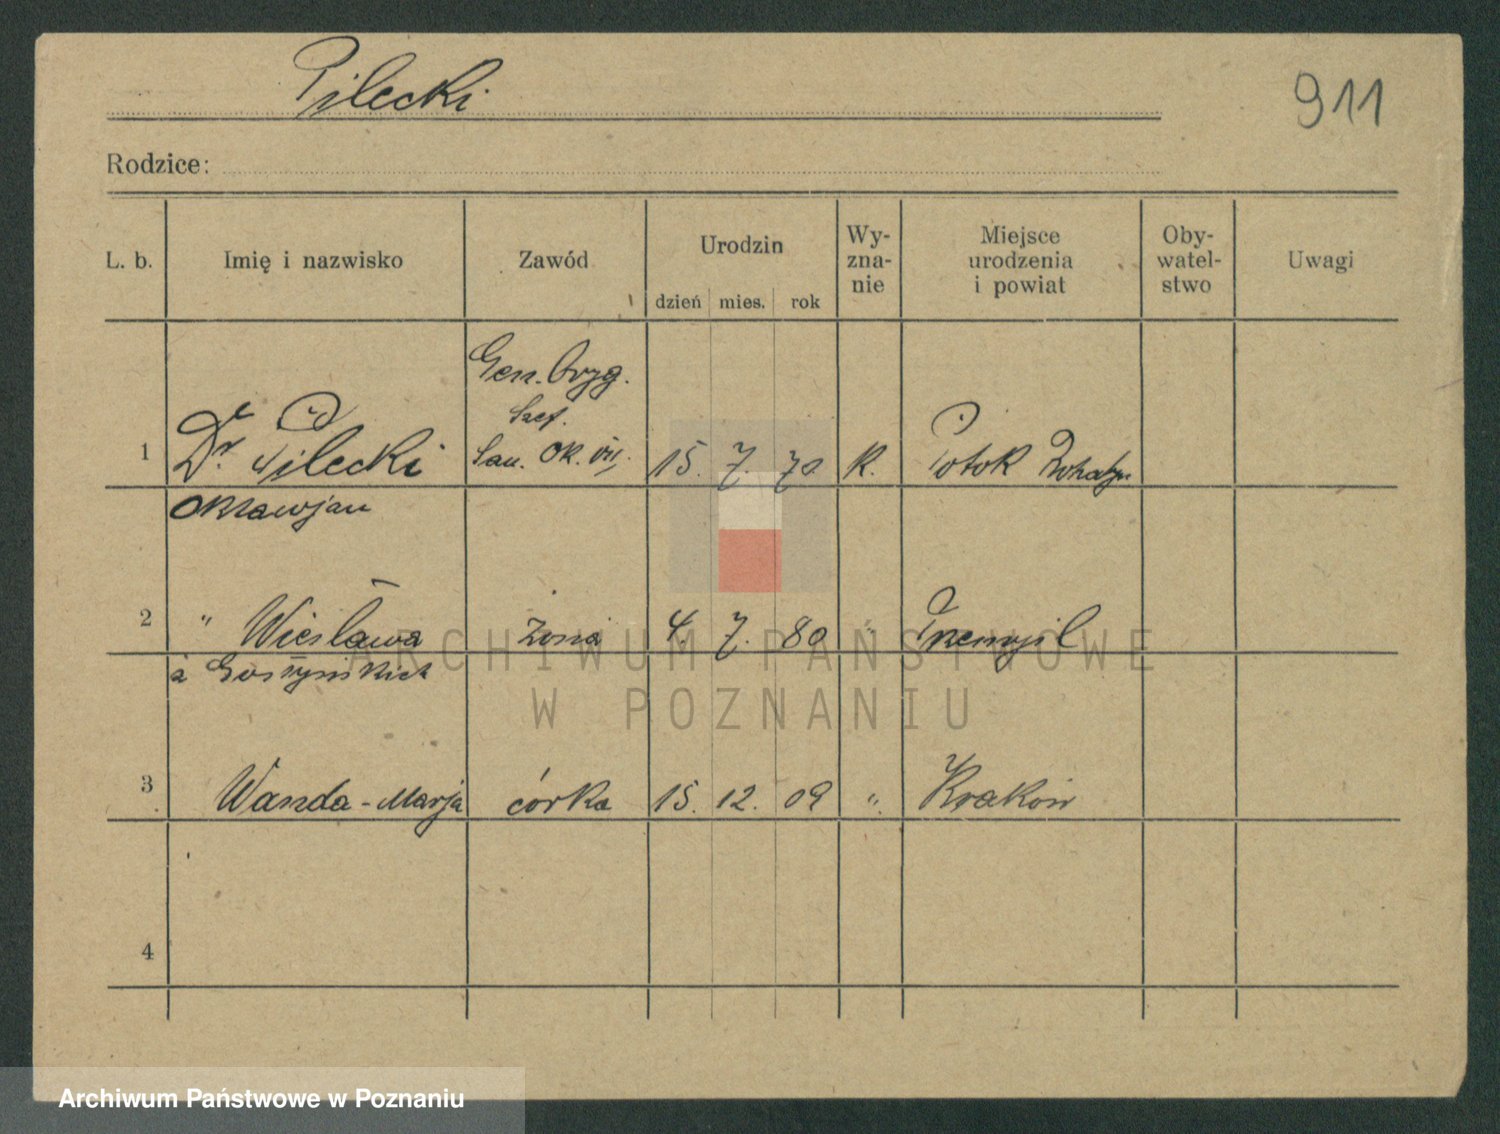 Pilecki
911
Rodzice:
L. b. Imię i nazwisko Zawód Urodzin dzień mies. rok Wy-zna-nie Miejsce urodzenia i powiat Oby-watel-stwo Uwagi
Gen. Bryg.
Szef.
1 Dr. Pilecki San. OK. VII. 15. 7. 70. K. Potok Rohatyn
Oktawjan
2 " Wiesława żona 4. 7. 80 " Przemyśl
z Goszyńskich
3 Wanda-Marja córka 15. 12. 09 " Kraków
4
ARCHIWUM PAŃSTWOWE
W POZNANIU
Archiwum Państwowe w Poznaniu